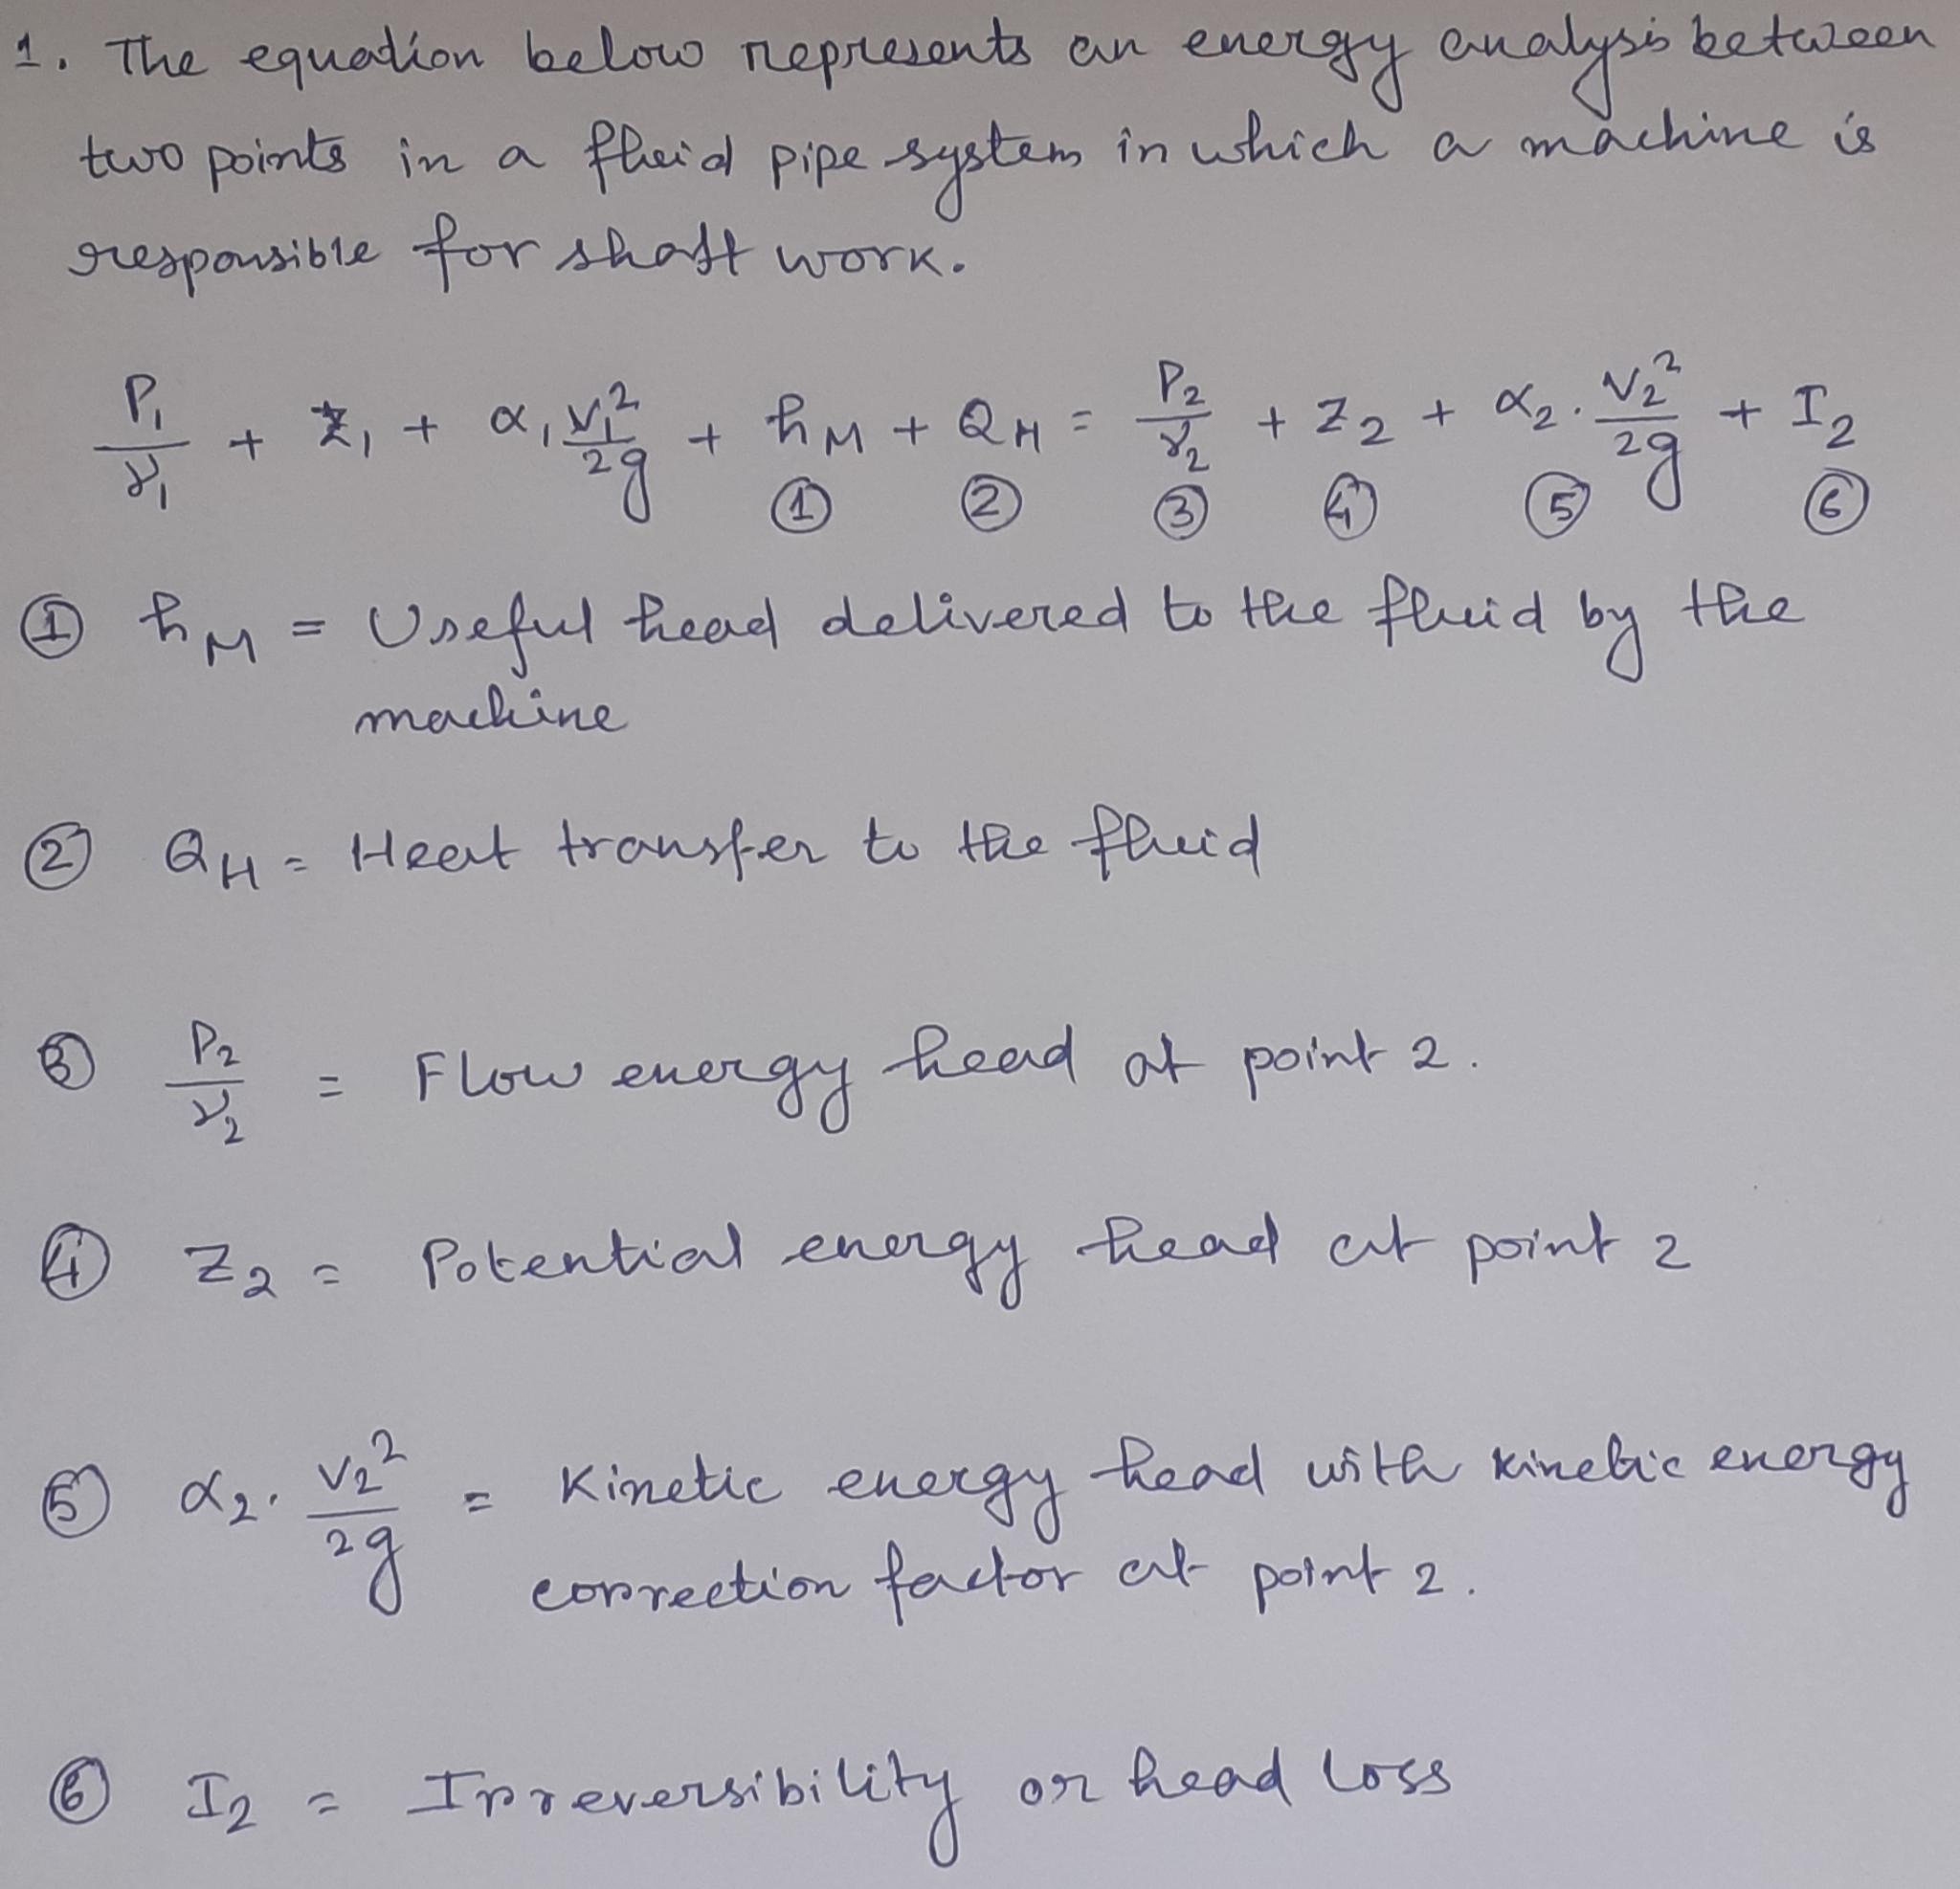 1. The equation below represents an energy analysis between
two points in a fluid pipe system in which a machine is
responsible for shaft work.
P₁/γ₁ + Z₁ + α₁ V₁²/2g + hM + QH = P₂/γ₂ + Z₂ + α₂. V₂²/2g + I₂
① ② ③ ④ ⑤ ⑥
① hM = Useful head delivered to the fluid by the
machine
② QH = Heat transfer to the fluid
③ P₂/γ₂ = Flow energy head at point 2.
④ Z₂ = Potential energy head at point 2
⑤ α₂. V₂²/2g = Kinetic energy head with kinetic energy
correction factor at point 2.
⑥ I₂ = Irreversibility or head loss